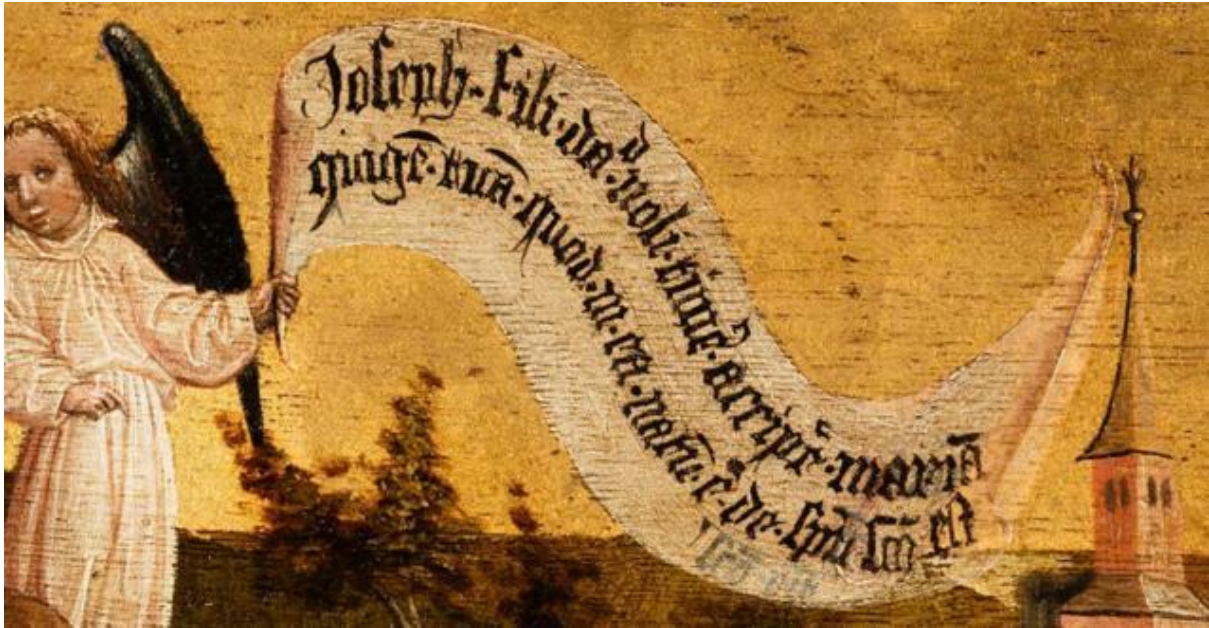 Joseph·fili·dā^d·noli·timē·accipē·mariā
giugē·tuā·quod·in·ea·natū·ē·de·spū scō est